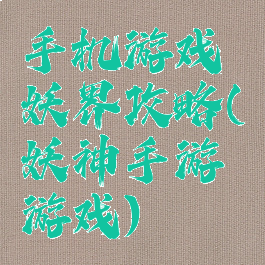 手机游戏
妖界攻略(
妖神手游
游戏)